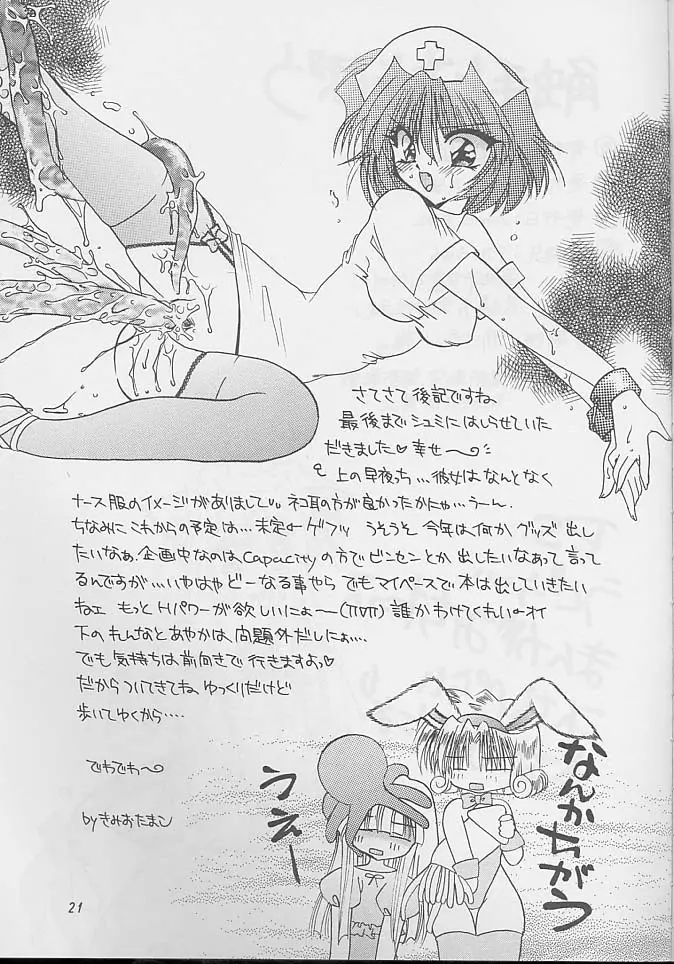 さてさて後記ですね
最後までシュミにはしらせていた
だきました♡幸せ〜
上の早夜っち…彼女はなんとなく
ナース服のイメージがありまして。ネコ耳の方が良かったかにゃ…うーん。
ちなみにこれからの予定は…未定←ゲフッ うそうそ 今年は何かグッズ出し
たいなぁ。企画中なのはCapacityの方でビンセンとか出したいなあって言って
るんですが…いやはやどーなる事やら でもマイペースで本は出していきたい
ねェ もっとHパワーが欲しいにょ〜 誰かわけてくれい←オイ
下のもんなとあやかは、問題外だしにぉ…
でも気持ちは前向きで行きますよっ♡
だからついてきてね ゆっくりだけど
歩いてゆくから…
でわでわ〜
by きみおたまこ
なんかちがう
うえー
21